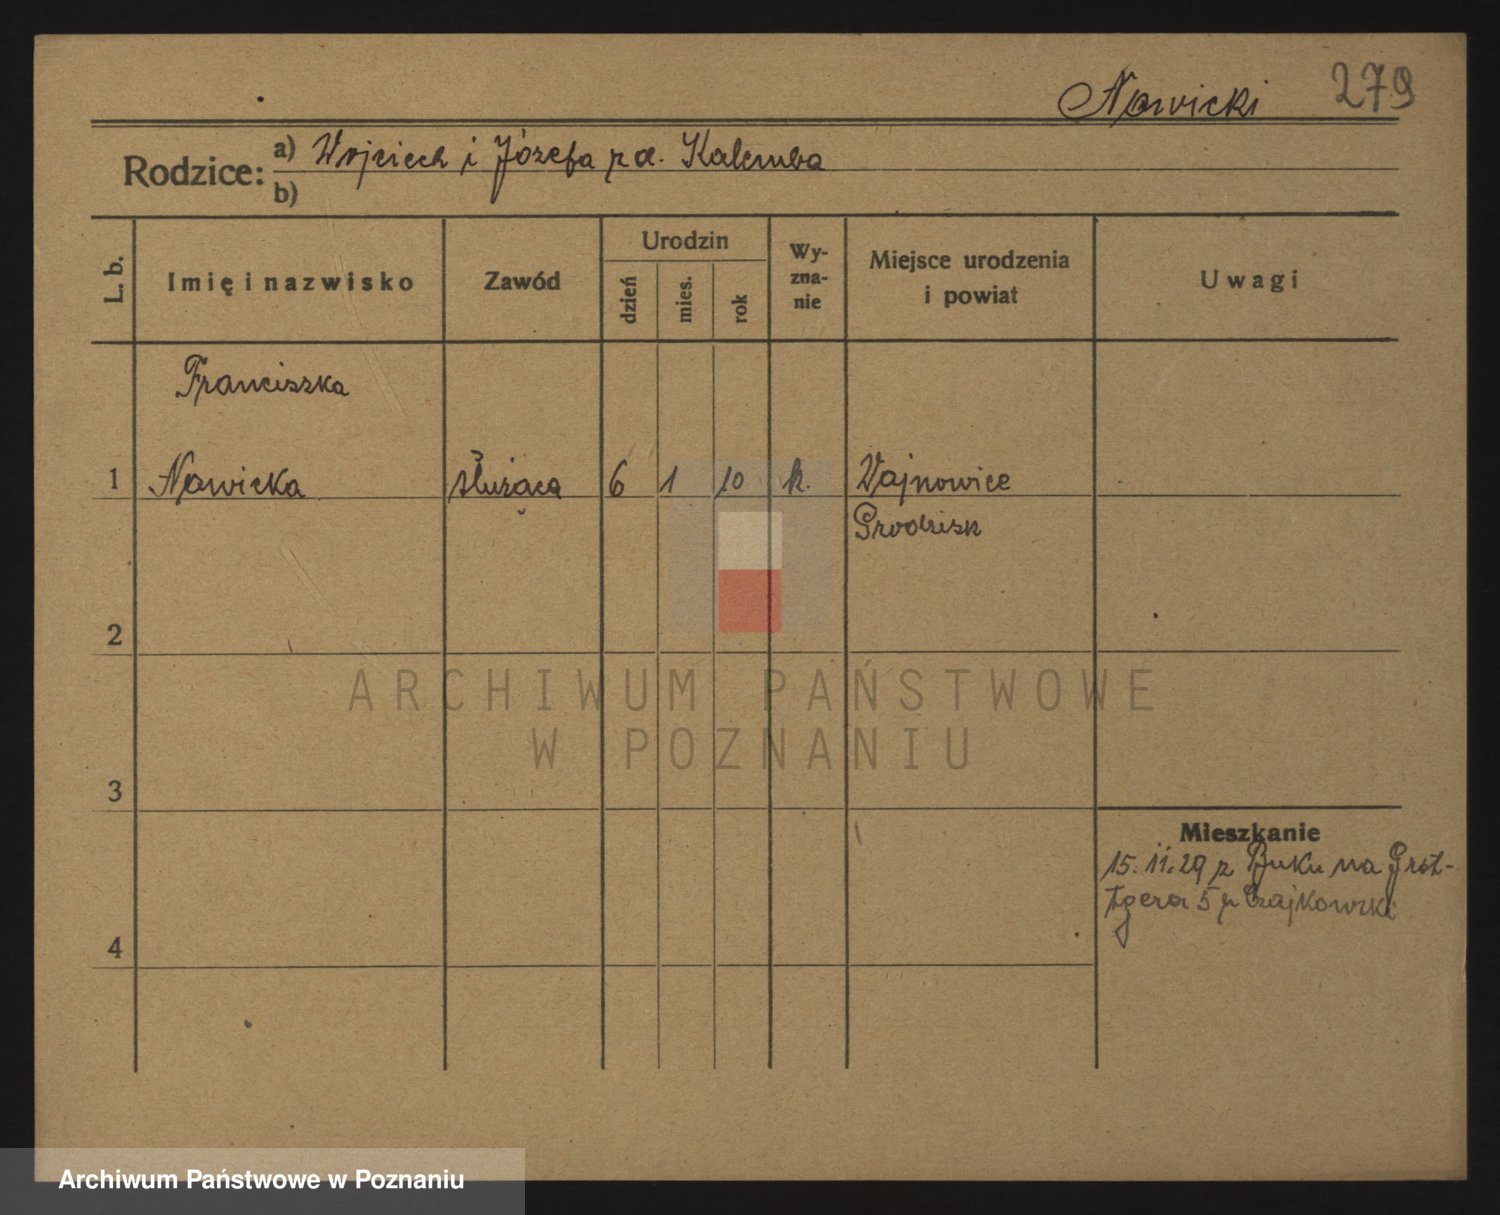 Nowicki 279
Rodzice: a) Wojciech i Józefa z d. Kalemba
b)
L. b.
Imię i nazwisko
Zawód
Urodzin
dzień
mies.
rok
Wy-
zna-
nie
Miejsce urodzenia
i powiat
Uwagi
Franciszka
1 Nowicka służąca 6 1 10 k. Wojnowice
Grodzisk
2
ARCHIWUM PAŃSTWOWE
W POZNANIU
3
Mieszkanie
15. 11. 29 z Buku na Grot-
tgera 5 p Czajkowski
4
Archiwum Państwowe w Poznaniu